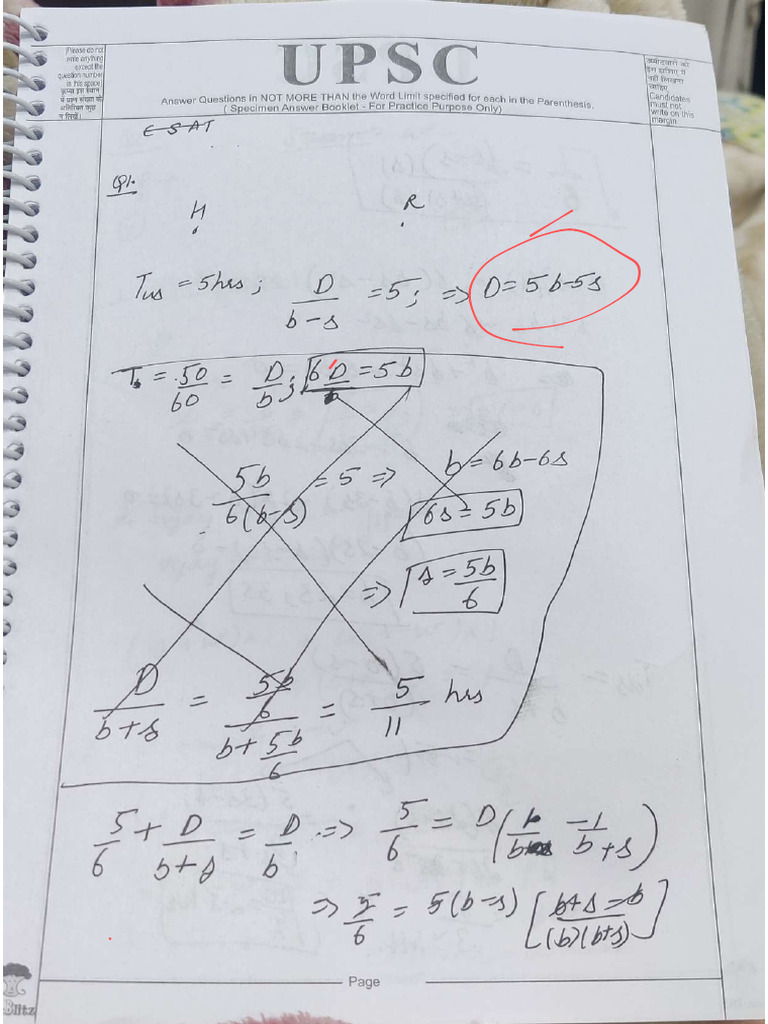 Please do not write anything except the question number in this space
कृपया इस स्थान में प्रश्न संख्या को अतिरिक्त कुछ न लिखें
UPSC
Answer Questions in NOT MORE THAN the Word Limit specified for each in the Parenthesis.
( Specimen Answer Booklet - For Practice Purpose Only)
उम्मीदवारों को इस हाशिए में नहीं लिखना चाहिए
Candidates must not write on this margin
CSAT
Q1.
H R
T_us = 5hrs ; D/(b-s) = 5 ; => D = 5b-5s
T = 50/60 = D/b ; 6D = 5b
5b/6(b-s) = 5 => b = 6b-6s
6s = 5b
=> s = 5b/6
D/(b+s) = (5b/6)/(b+5b/6) = 5/11 hrs
5/6 + D/(b+s) = D/b => 5/6 = D(1/b - 1/(b+s))
=> 5/6 = 5(b-s) [(b+s-b)/(b)(b+s)]
Page
Blitz